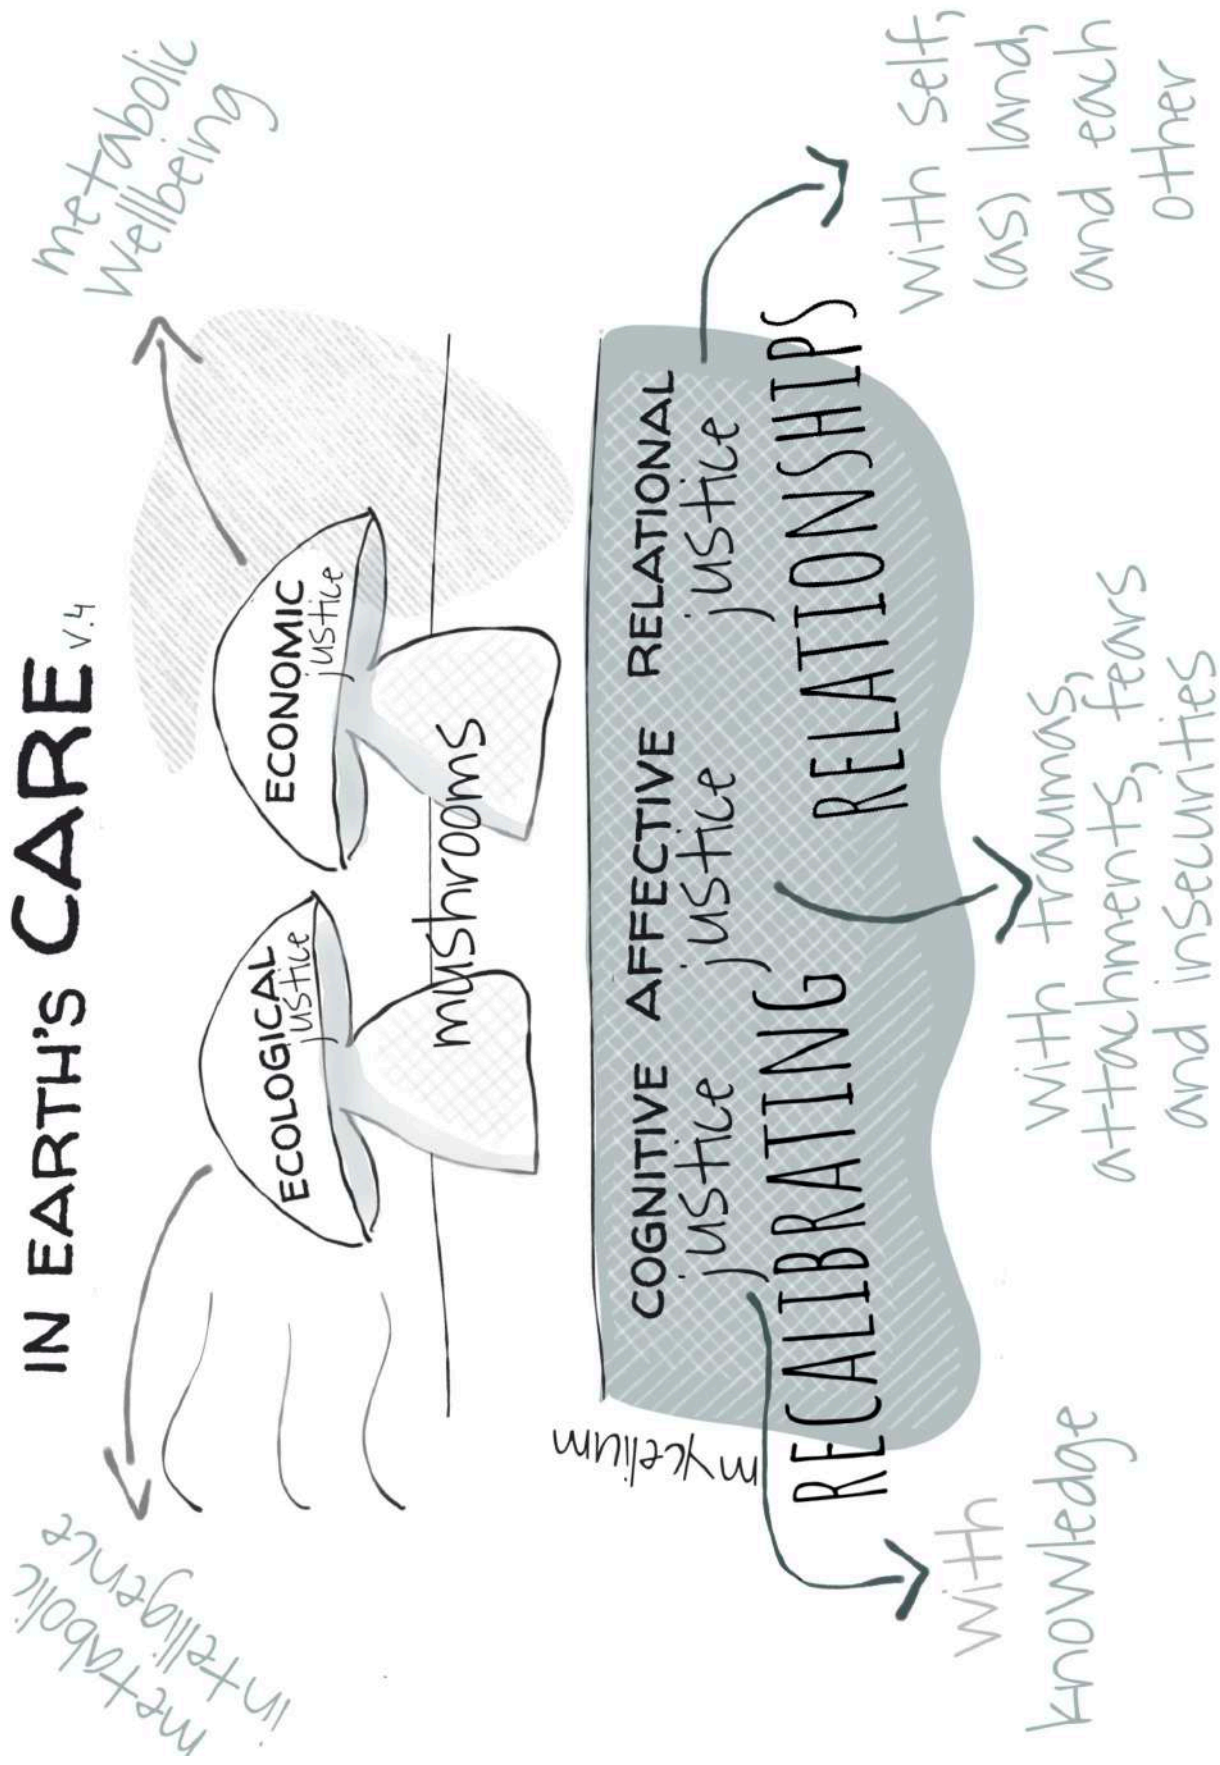 IN EARTH'S CARE v.4
metabolic
intelligence
metabolic
wellbeing
ECOLOGICAL
justice
ECONOMIC
justice
mushrooms
mycelium
COGNITIVE
justice
AFFECTIVE
justice
RELATIONAL
justice
RECALIBRATING
RELATIONSHIPS
with
knowledge
with traumas,
attachments, fears
and insecurities
with self,
(as) land,
and each
other